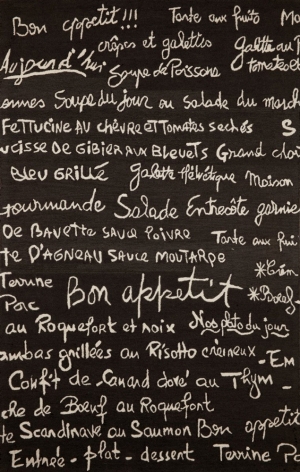 Bon appetit!!! Tarte aux fruits
crêpes et galettes Galette au
Aujourd'hui Soupe de Poissons tomates et
ennes Soupe du jour ou salade du march
FETTUCINE AU CHÈVRE ET TOMATES SECHÉS S
UCISSE DE GIBIER AUX BLEUETS Grand choi
BLEU GRILLÉ Galette Helvétique Maison
gourmande Salade Entrecôte garnie
DE BAVETTE SAUCE POIVRE Tarte aux frui
te D'AGNEAU SAUCE MOUTARDE
Terrine Bon appetit *Crèm
Porc *Boeuf
au Roquefort et noix Nos plats du jour
ambas grillées au Risotto crémeux - Em
Confit de Canard doré au Thym -
che de Bœuf au Roquefort
te Scandinave au Saumon Bon appetit
Entrée - plat - dessert Terrine Pa